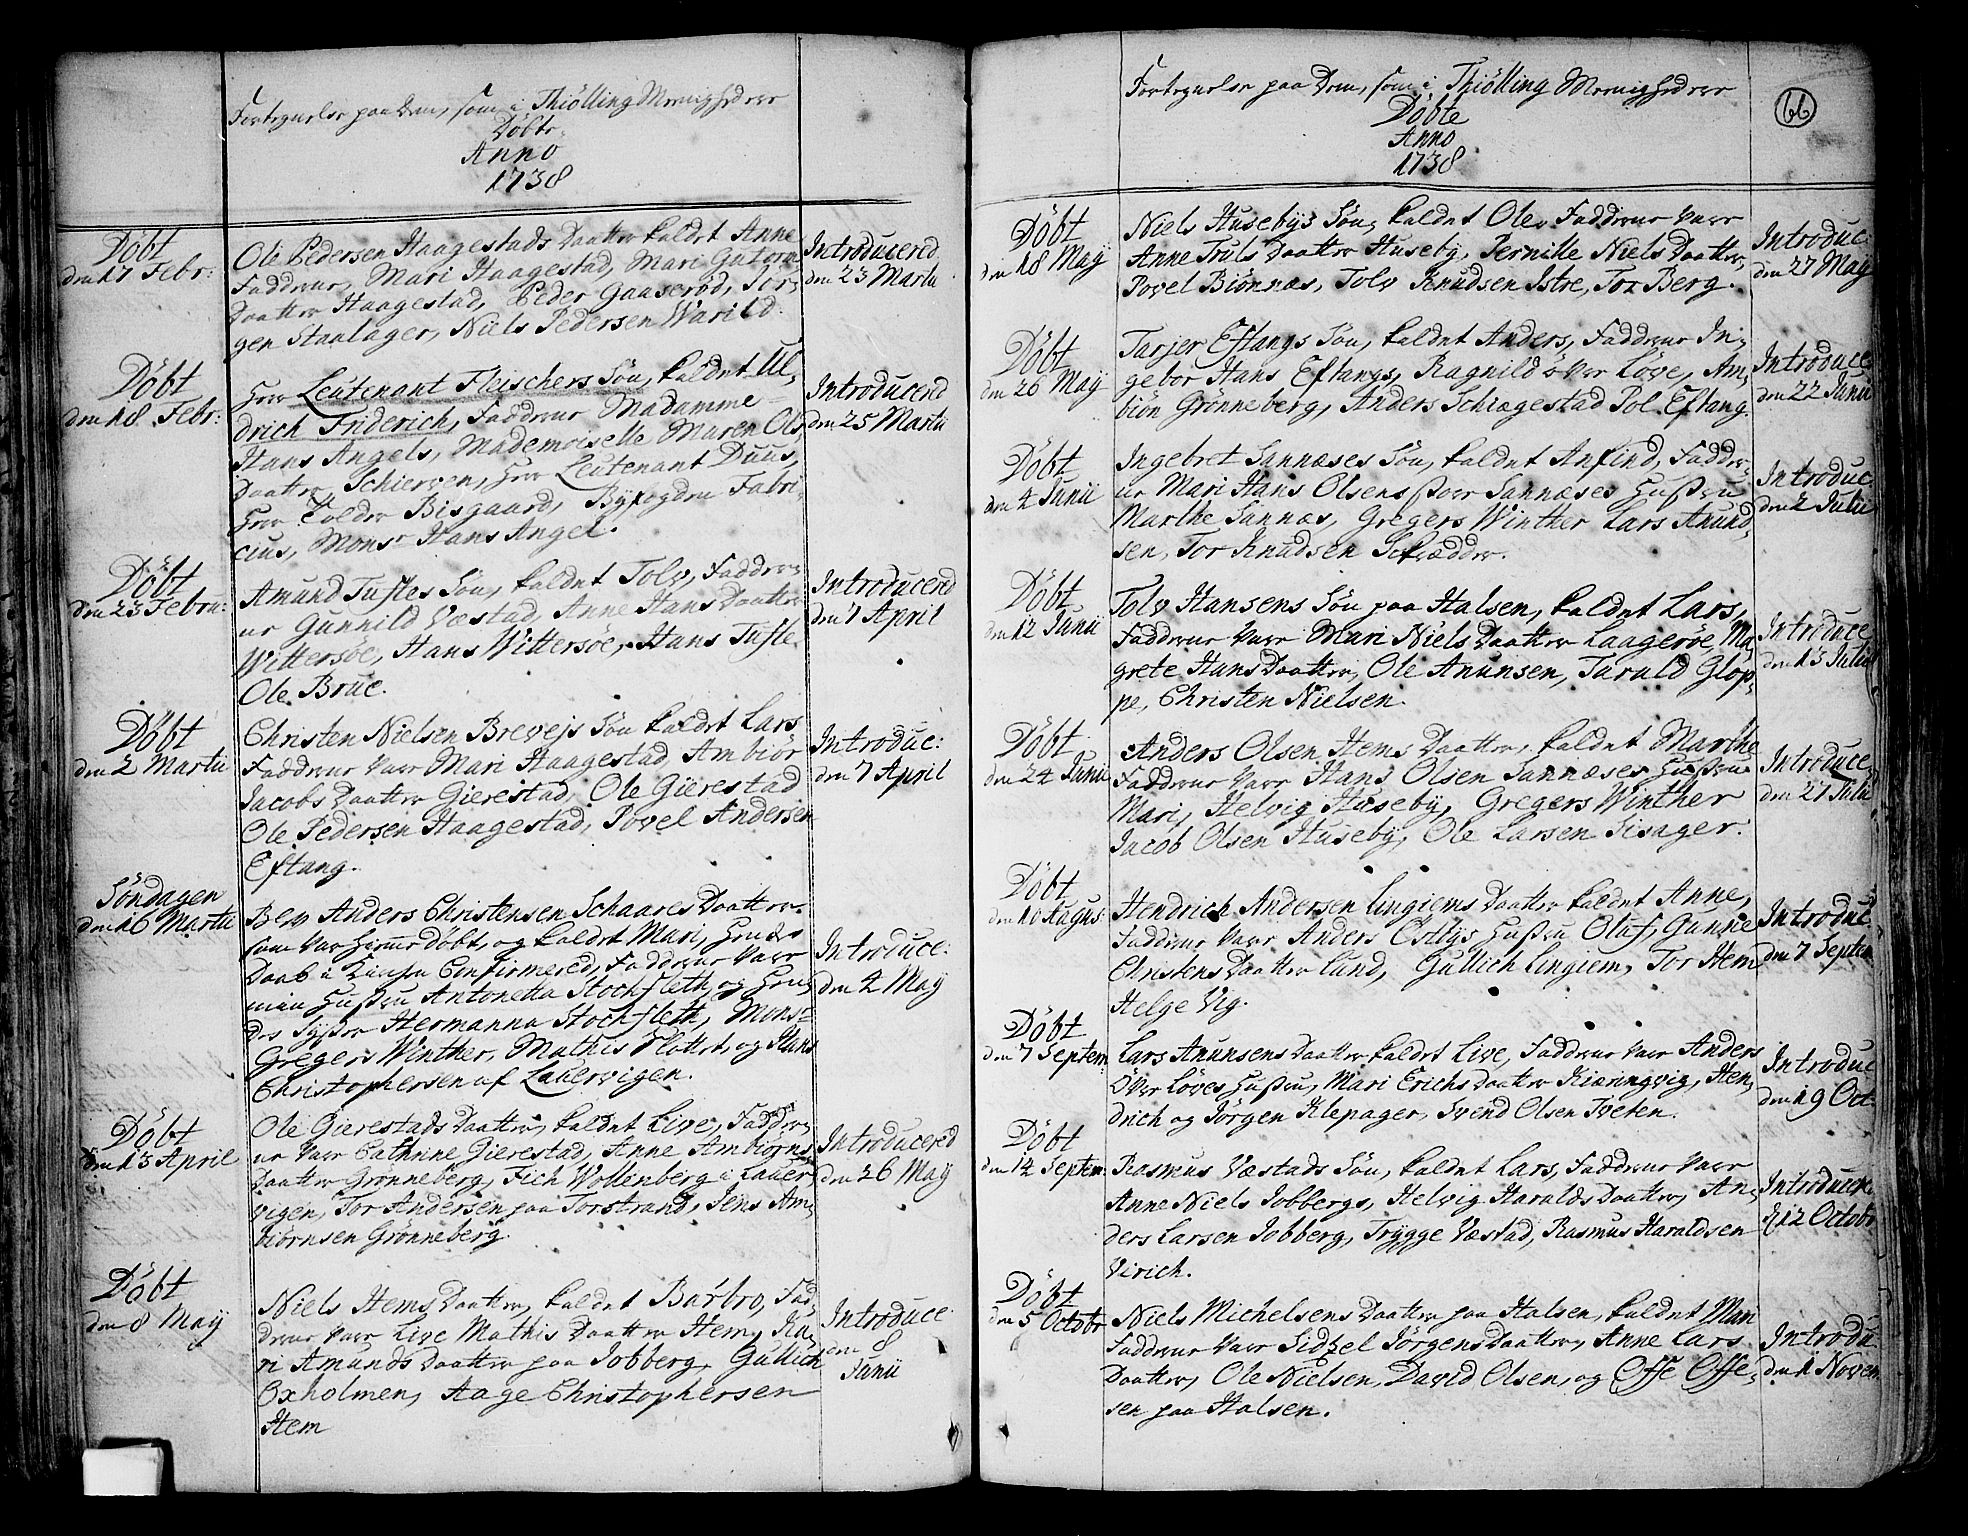 Fortegnelse paa Dem, som i Thiölling Menighed ere
Döbte
Anno
1738
Döbt
den 17 Febr:
Ole Pedersen Haagestads Daatter kaldet Anne
Faddrene, Mari Haagestad, Mari Gutorm
Daatter Haagestad, Peder Gaaserød, Jör-
gen Staalager, Niels Pedersen Warild.
Introducered
den 23 Martii
Döbt
den 18 Febr:
Herr Leutenant Fleischers Sön, kaldet Ul-
drich Friderich, Faddrene Madamme
Hans Angels, Mademoiselle Maren Ols
Daatter Schierven, Herr Leutenant Duus,
Herr Tolder Bisgaard, Byfogden Fabri-
cius, Monsr Hans Angel.
Introducered
den 25 Martii
Döbt
den 23 Febru:
Amund Tuftes Sön, kaldet Tolv, Faddre-
ne Gunnild Væstad, Anne Hans Daatter
Wittersöe, Hans Wittersöe, Hans Tufte
Ole Brue.
Introducered
den 7 April
Döbt
den 2 Martii
Christen Nielsen Brevejs Sön kaldet Lars
Faddrene vare Mari Haagestad, Ambiör
Jacobs Daatter Gierestad, Ole Gierestad
Ole Pedersen Haagestad, Povel Andersen
Eftang.
Introduc:
den 7 April
Söndagen
den 16 Martii
Blev Anders Christensen Schaares Daatter
som var hiemme Döbt, og kaldet Mari, hendes
Daab i Kirken Confirmered, Faddrene vare
min Hustru Antonetta Stochfleth, og hen-
des Syster Hermanna Stochfleth, Monsr
Gregers Winther, Mathis Flottet, og Hans
Christophersen af Lauervigen.
Introduce:
den 4 May
Döbt
den 13 April
Ole Gierestads Daatter, kaldet Live, Faddre-
ne vare Cathrine Gierestad, Anne Ambiörns
Daatter Grönneberg, Fich Wollenberg i Lauer-
vigen, Tor Andersen paa Torstrand, Jens Am-
biörnsen Grönneberg.
Introducered
den 26 May
Döbt
den 8 May
Niels Hems Daatter, kaldet Barbro, Fad-
drene vare Live Mathis Daatter Hem, Ka-
ri Amunds Daatter paa Jobberg, Gullich
Oxholmen, Aage Christophersen
Hem
Introduce
den 8
Junii
66
Fortegnelse paa Dem, som i Thiölling Menighed ere
Döbte
Anno
1738
Döbt
den 18 May
Niels Husebys Sön, kaldet Ole, Faddrene vare
Anne Truls Daatter Huseby, Pernille Niels Daatter,
Povel Biönnæs, Tolv Knudsen Istre, Tor Berg.
Introduc
den 27 May
Döbt
den 26 May
Tarjer Eftangs Sön, kaldet Anders, Faddrene In-
gebor Hans Eftangs, Ragnild över Löve, Am-
biön Grönneberg, Anders Schiægestad Pol Eftang.
Introduce
den 22 Junii
Döbt
den 4 Junii
Ingebret Sannæses Sön, kaldet Anfind, Faddre-
ne Mari Hans Olsens store Sannæses Hustru
Marthe Sannæs, Gregers Winther Lars Anund-
sen, Tor Knudsen Schrædder.
Introduc
den 2 Julii
Döbt
den 12 Junii
Tolv Hansens Sön paa Halsen, kaldet Lars,
Faddrene vare Mari Niels Daatter Laagerøe, Ma-
grete Hans Daatter, Ole Anunsen, Tarald Glop-
pe, Christen Nielsen.
Introduce
den 13 Julii
Döbt
den 24 Junii
Anders Olsen Hems Daatter, kaldet Marthe
Faddrene vare Hans Olsen Sannæses Hustru
Mari, Helvig Huseby, Gregers Winther
Jacob Olsen Huseby, Ole Larsen Sisager.
Introduce
den 27 Julii
Döbt
den 10 Augus:
Hendrich Andersen Lingiems Daatter kaldet Anne,
Faddrene vare Anders Östbys Hustru Oluf, Gunne
Christens Daatter Lund, Gullich Lingiem, Tor Hem
Helge Vig.
Introduc
den 7 Septem
Döbt
den 7 Septem:
Lars Anunsens Daatter kaldet Live, Faddrene vare Anders
Över Löves Hustru, Mari Erichs Daatter Kiæringvig, Hen-
drich og Jörgen Klepager, Svend Olsen Tveten.
Introduc
den 19 Oct:
Döbt
den 14 Septem:
Rasmus Væstads Sön, kaldet Lars, Faddrene vare
Anne Niels Jobbergs, Helvig Haralds Daatter, An-
ders Larsen Jobberg, Trygge Væstad, Rasmus Haraldsen
Virich.
Introducere
d 12 Octobr
Döbt
den 5 Octobr
Niels Michelsens Daatter paa Halsen, kaldet Mari
Faddrene vare Sidzel Jörgens Daatter, Anne Lars
Daatter, Ole Nielsen, David Olsen, og Offe Offe-
sen paa Halsen.
Introdu
den 1 Novem